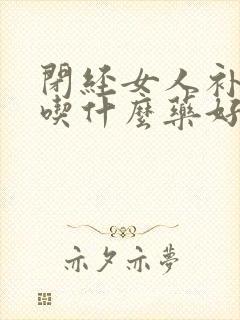 閉經女人補
喫什麼藥好
亦夕亦夢